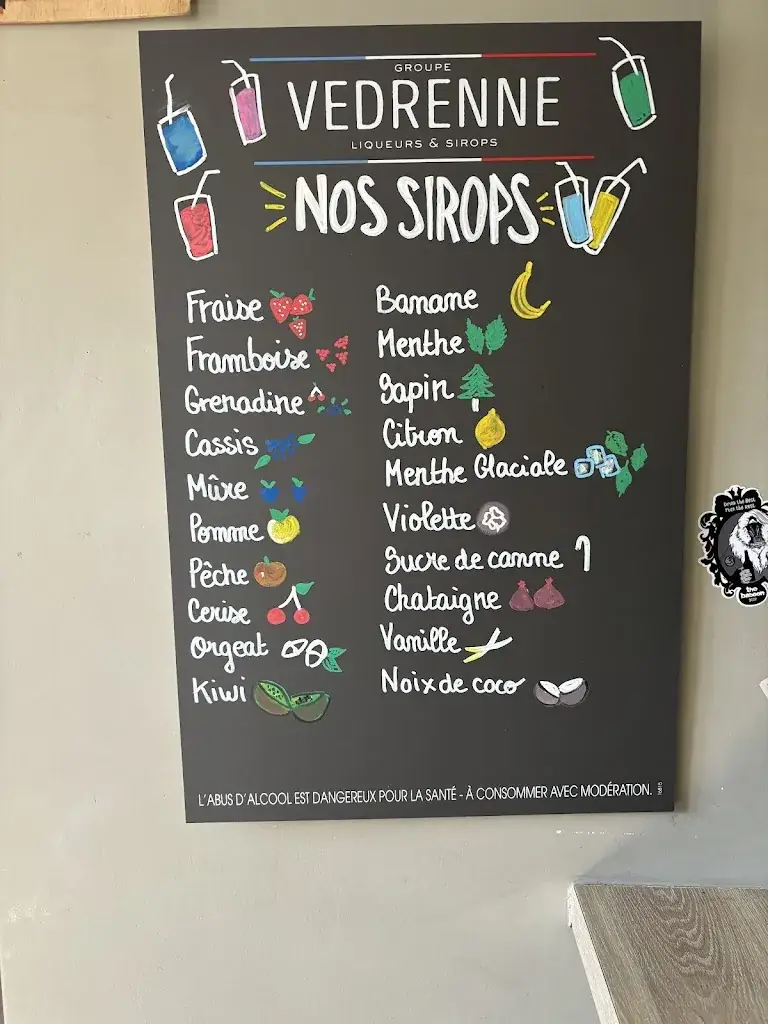 GROUPE
VEDRENNE
LIQUEURS & SIROPS
NOS SIROPS
Fraise
Framboise
Grenadine
Cassis
Mûre
Pomme
Pêche
Cerise
Orgeat
Kiwi
Banane
Menthe
Sapin
Citron
Menthe Glaciale
Violette
Sucre de canne
Chataigne
Vanille
Noix de coco
L'ABUS D'ALCOOL EST DANGEREUX POUR LA SANTÉ - À CONSOMMER AVEC MODÉRATION.
the
baboon